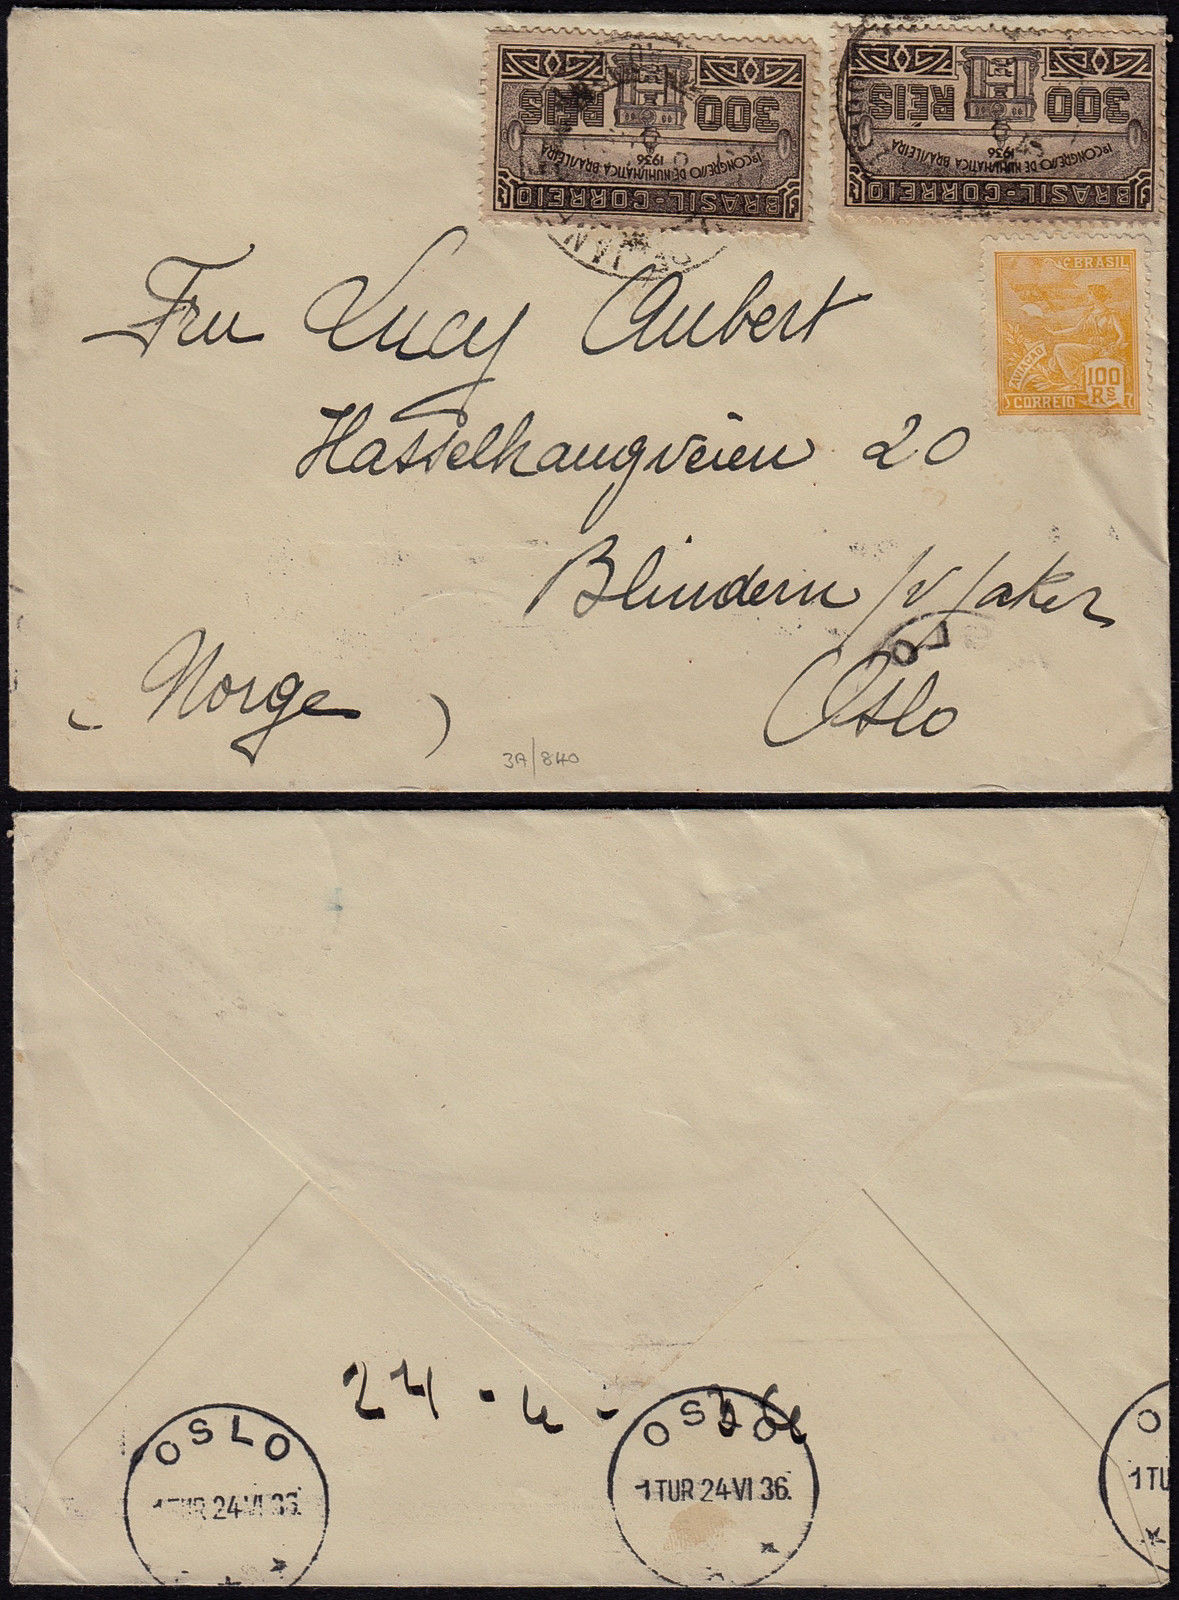 BRASIL-CORREIO
1º CONGRESSO DE NUMISMATICA BRASILEIRA
1936
300 REIS
BRASIL-CORREIO
1º CONGRESSO DE NUMISMATICA BRASILEIRA
1936
300 REIS
BRASIL
AVIAÇÃO
100 Rs
CORREIO
JAN
Fru Lucy Aubert
Hasselhaugveien 20
Blindern /v/ aker
Oslo
(Norge)
3A/840
24-6-36
OSLO
1TUR 24 VI 36.
OSLO
1TUR 24 VI 36.
O
1TU